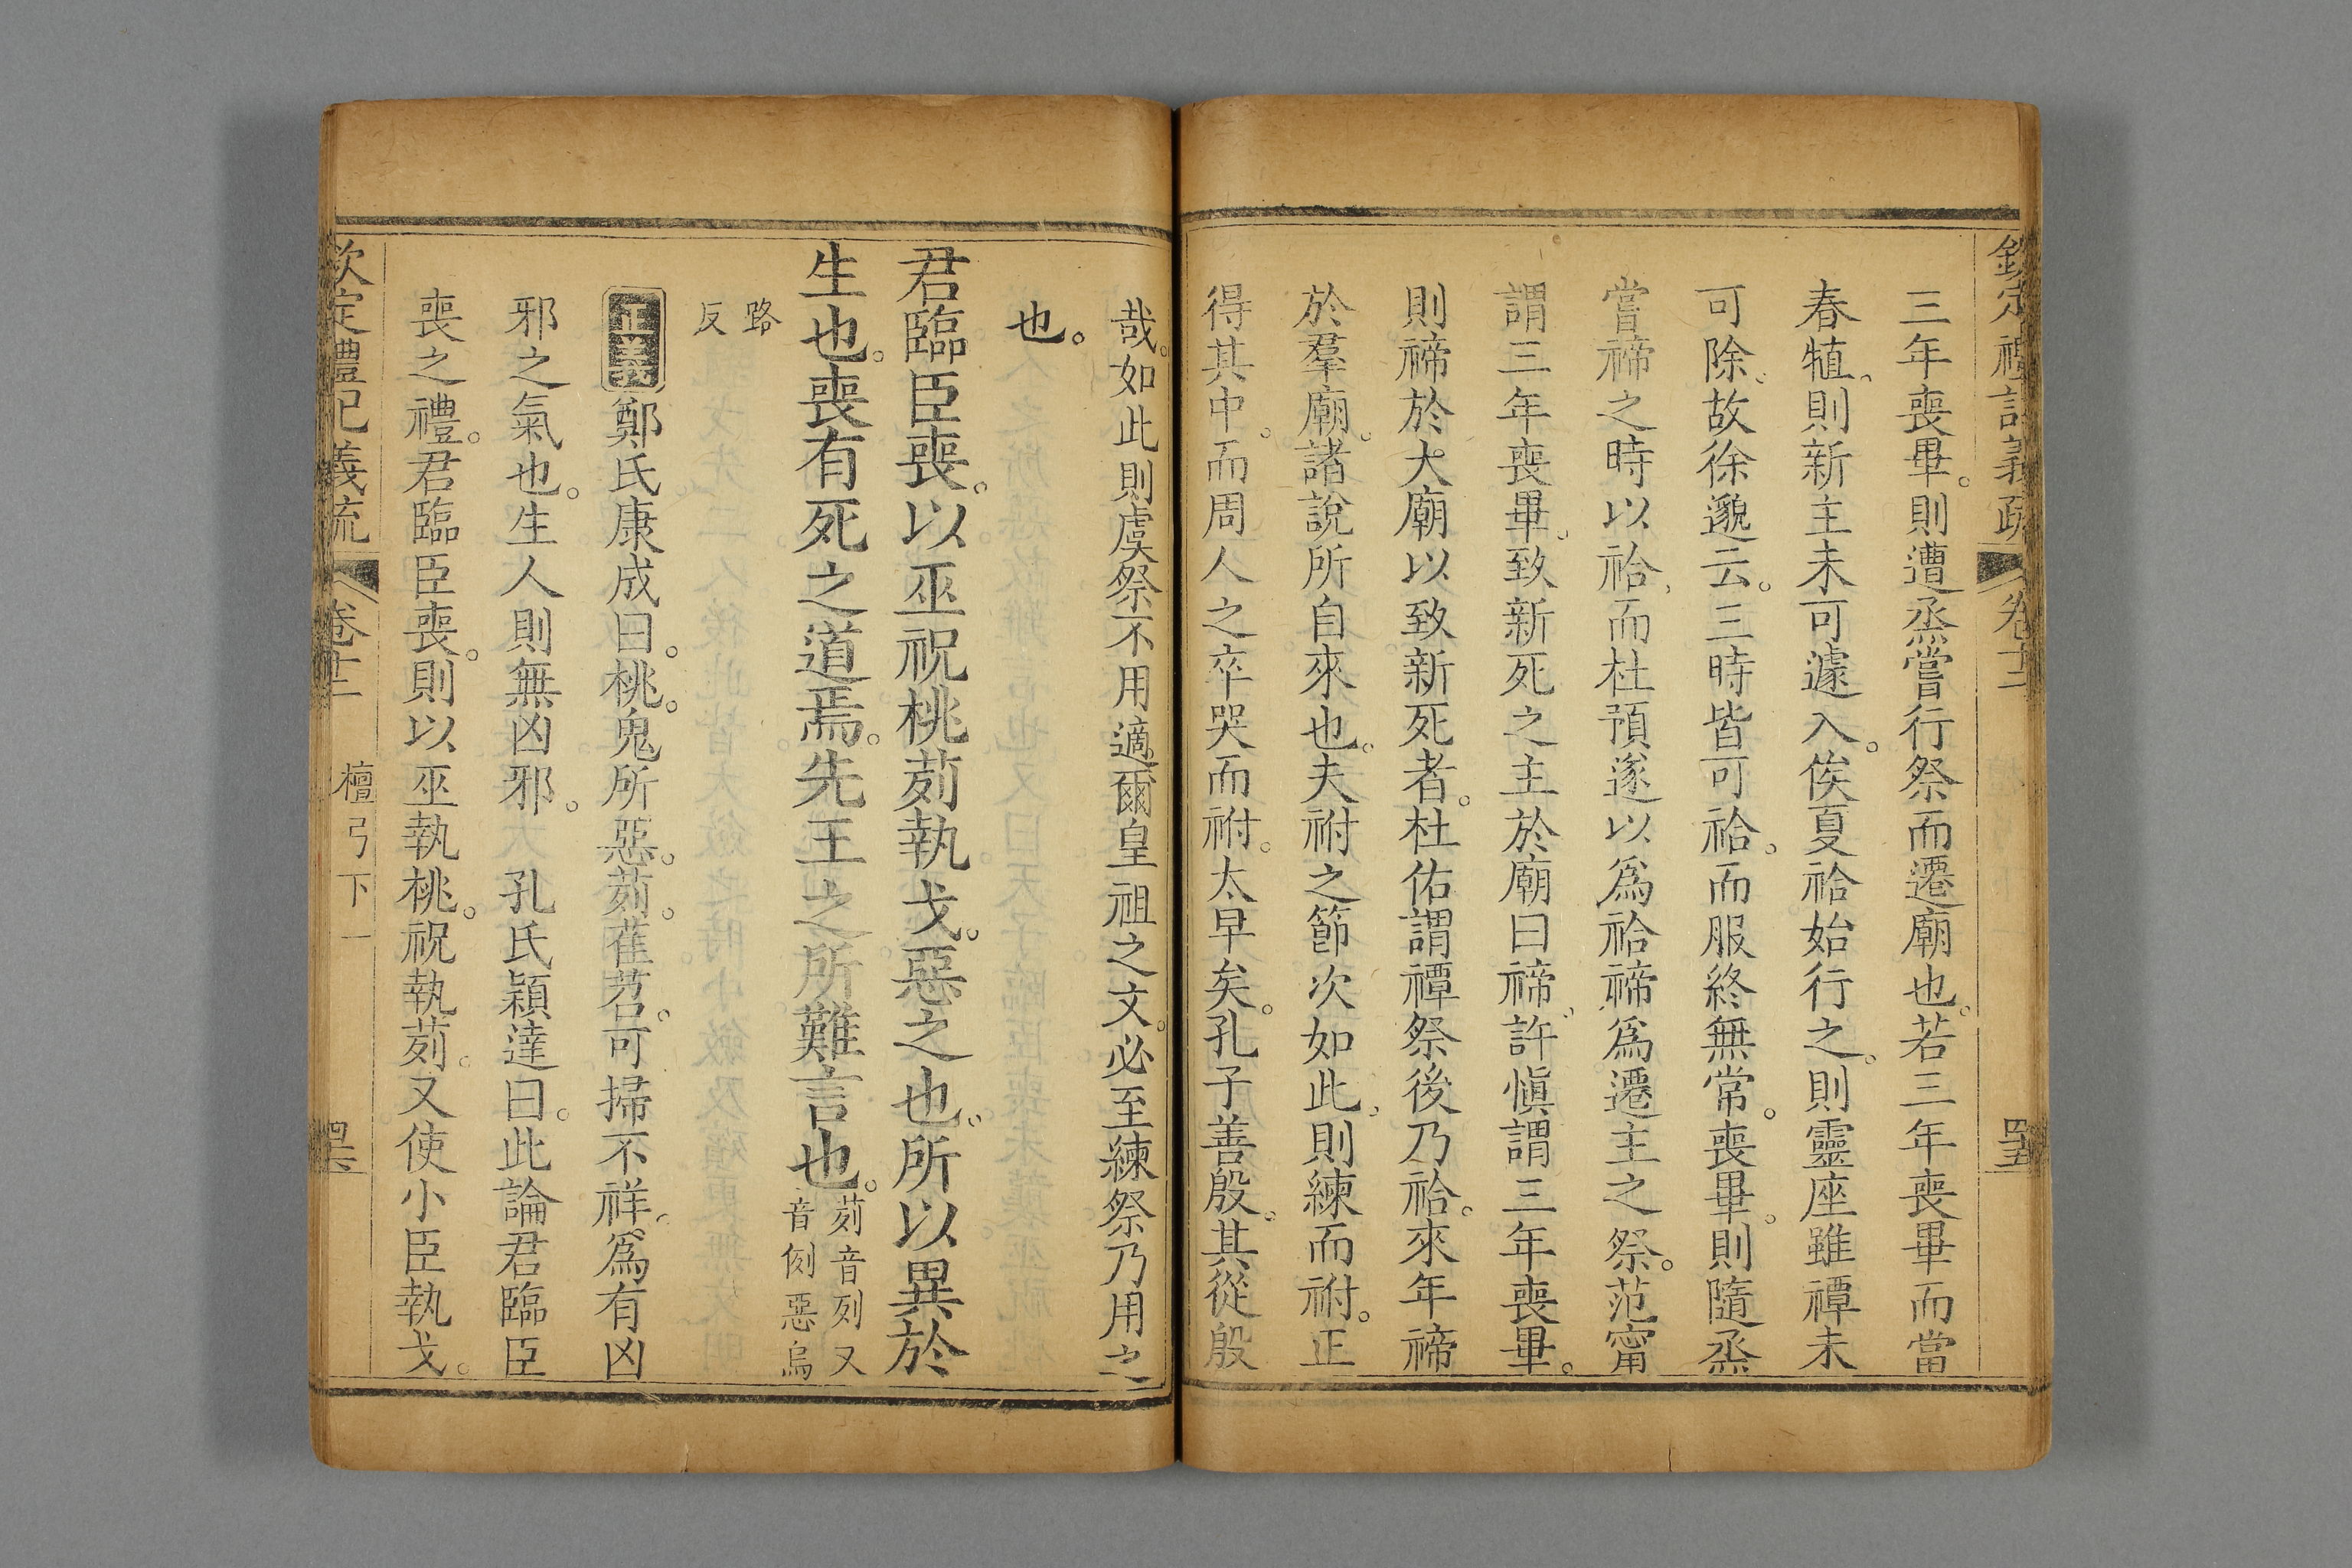 欽定禮記義疏 卷十二 四五
三年喪畢。則遭烝嘗行祭而遷廟也。若三年喪畢而當
春犆、則新主未可遽入。俟夏祫始行之。則靈座雖禫未
可除、故徐邈云。三時皆可祫。而服終無常。喪畢。則隨烝
嘗禘之時以祫、而杜預遂以爲祫禘爲遷主之祭。范甯
謂三年喪畢、致新死之主於廟曰禘、許愼謂三年喪畢。
則禘於大廟以致新死者。杜佑謂禫祭後乃祫。來年禘
於羣廟。諸說所自來也。夫祔之節次如此、則練而祔。正
得其中。而周人之卒哭而祔。太早矣。孔子善殷。其從殷
哉。如此則虞祭不用適爾皇祖之文。必至練祭乃用之
也。
君臨臣喪。以巫祝桃茢執戈。惡之也、所以異於
生也。喪有死之道焉。先王之所難言也。茢音列又音例惡烏
路反
正義 鄭氏康成曰。桃。鬼所惡。茢。萑苕。可掃不祥。爲有凶
邪之氣也。生人則無凶邪。 孔氏穎達曰。此論君臨臣
喪之禮。君臨臣喪。則以巫執桃。祝執茢。又使小臣執戈。
欽定禮記義疏 卷十二 檀弓下一 四六